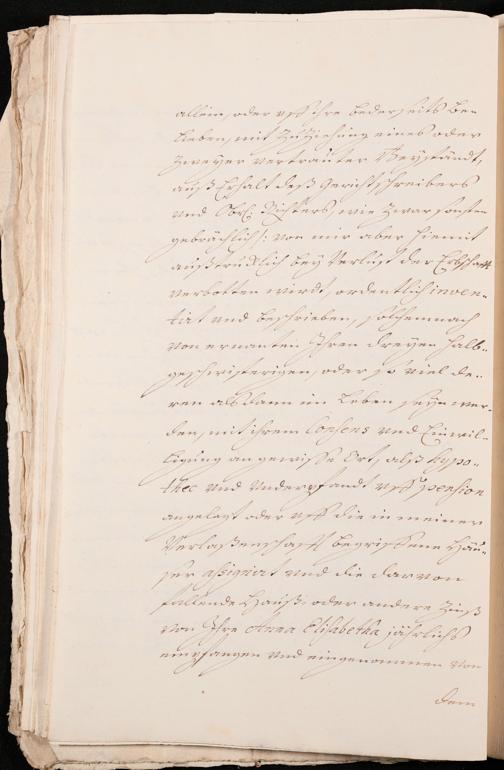 allein, oder uff ihre bederseits be-
lieben, mit Zuziehung eines oder
Zweyer vertrauter Beyständt,
auß Erhalt deß Gerichtschreibers
und Obr: Richters, wie Zwar sonsten
gebrächlich /: von mir aber hiemit
außtrücklich bey Verlust der Erbschafft
verbotten wirdt, ordentlich inven-
tirt und beschrieben, solchemnach
von ernanten Ihren dreyen halb-
geschwisterigen, oder so viel de-
ren alsdann im Leben seyn wer-
den, mit ihrem Consens und Einwil-
ligung an gewisse Ort, alß hypo-
thec und Underpfandt uff pension
angelegt oder uff die in meiner
Verlaßenschafft begriffene Häu-
ser assignirt und die darvon
fallende Hauß: oder andere Zinß
von Ihro Anna Elisabetha jährlichs
empfangen und eingenommen von
dem